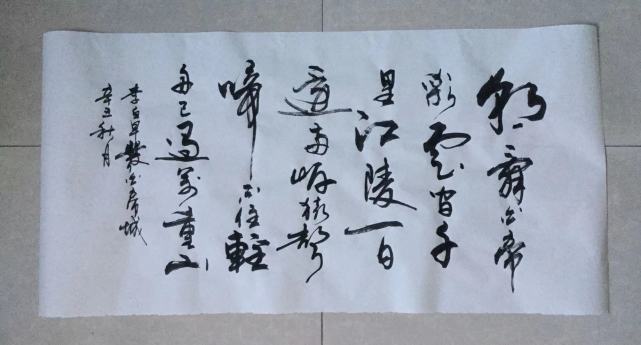 朝辭白帝
彩雲間千
里江陵一日
還兩岸猿聲
啼不住輕
舟已過萬重山
李白早發白帝城
辛丑秋月